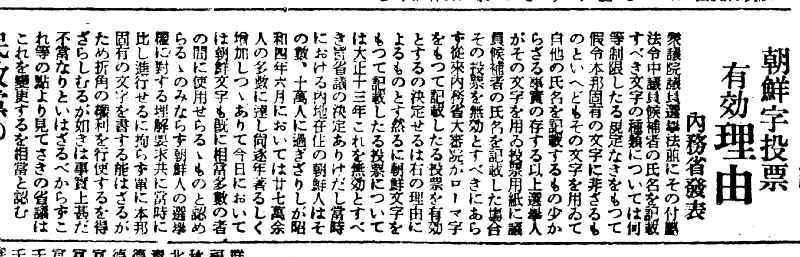 朝鮮字投票
有効理由
內務省發表
衆議院議員選擧法並にその付屬
法令中議員候補者の氏名を記載
すべき文字の種類については何
等制限したる規定なきをもつて
假令本邦固有の文字に非ざるも
のといへどもその文字を用ゐて
自他の氏名を記載するもの少か
らざる事實の存する以上選擧人
がその文字を用ゐ投票用紙に議
員候補者の氏名を記載した塲合
その投票を無効とすべきにあら
ず從來內務省大審院がローマ字
をもつて記載したる投票を有効
とするの決定せるは右の理由に
よるものとす然るに朝鮮文字を
もつて記載したる投票について
は大正十三年これを無効とすべ
き旨省議の決定ありけだし當時
における內地在住の朝鮮人はそ
の數、十萬人に過ぎざりしが昭
和四年六月においては廿七萬余
人の多數に達し尙逐年著るしく
增加しつゝありて今日において
は朝鮮文字も既に相當多數の者
の間に使用せらるゝものと認め
らるゝのみならず朝鮮人の選擧
權に對する理解要求共に當時に
比し進行せるに拘らず單に本邦
固有の文字を書する能はざるが
ため折角の權利を行使するを得
ざらしむるが如きは事實上甚だ
不當なりといはざるべからずこ
れ等の點より見てさきの省議は
これを變更するを相當と認む